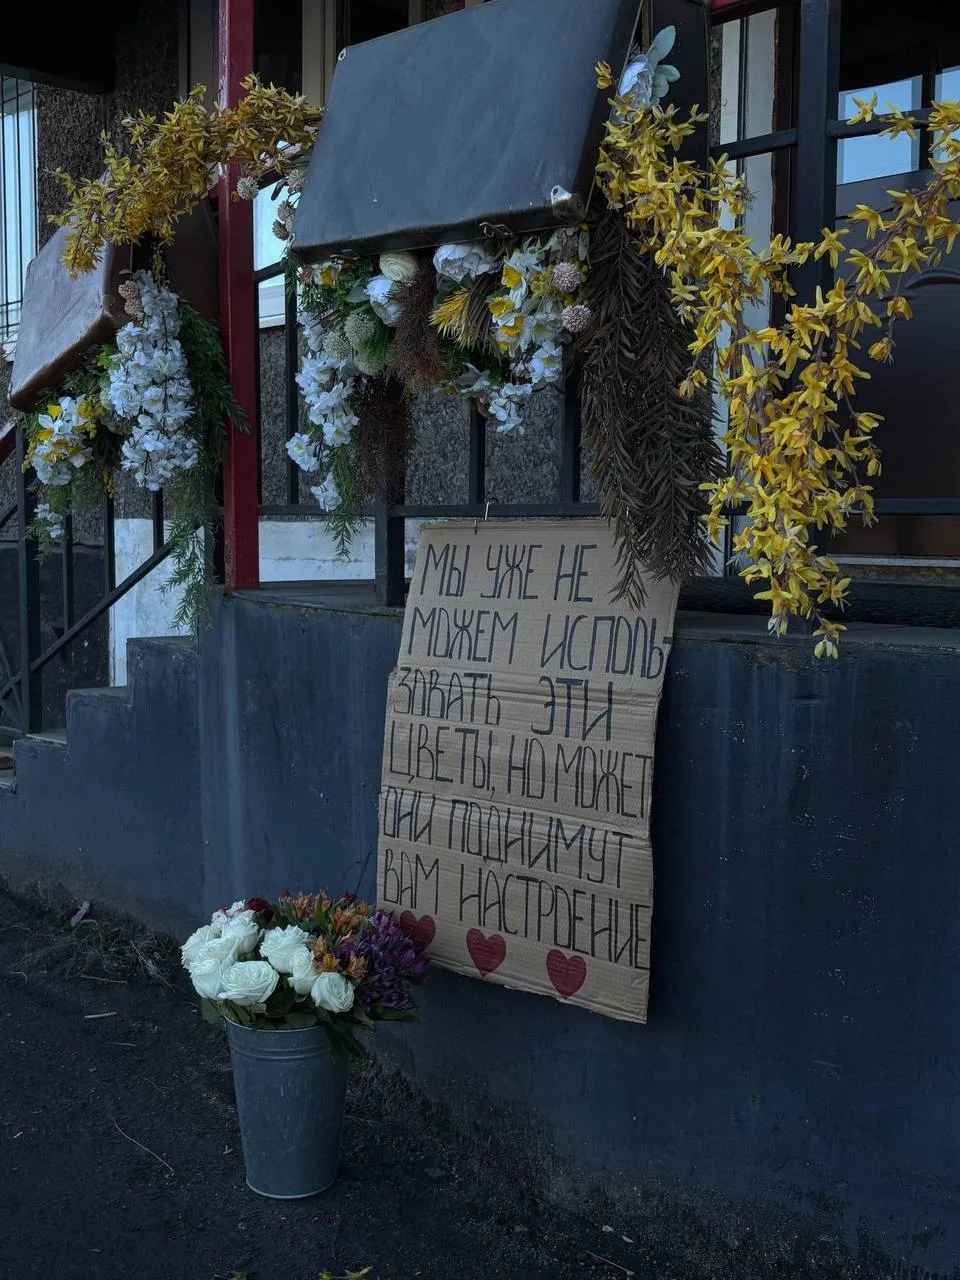 МЫ УЖЕ НЕ
МОЖЕМ ИСПОЛЬ-
ЗОВАТЬ ЭТИ
ЦВЕТЫ, НО МОЖЕТ
ОНИ ПОДНИМУТ
ВАМ НАСТРОЕНИЕ